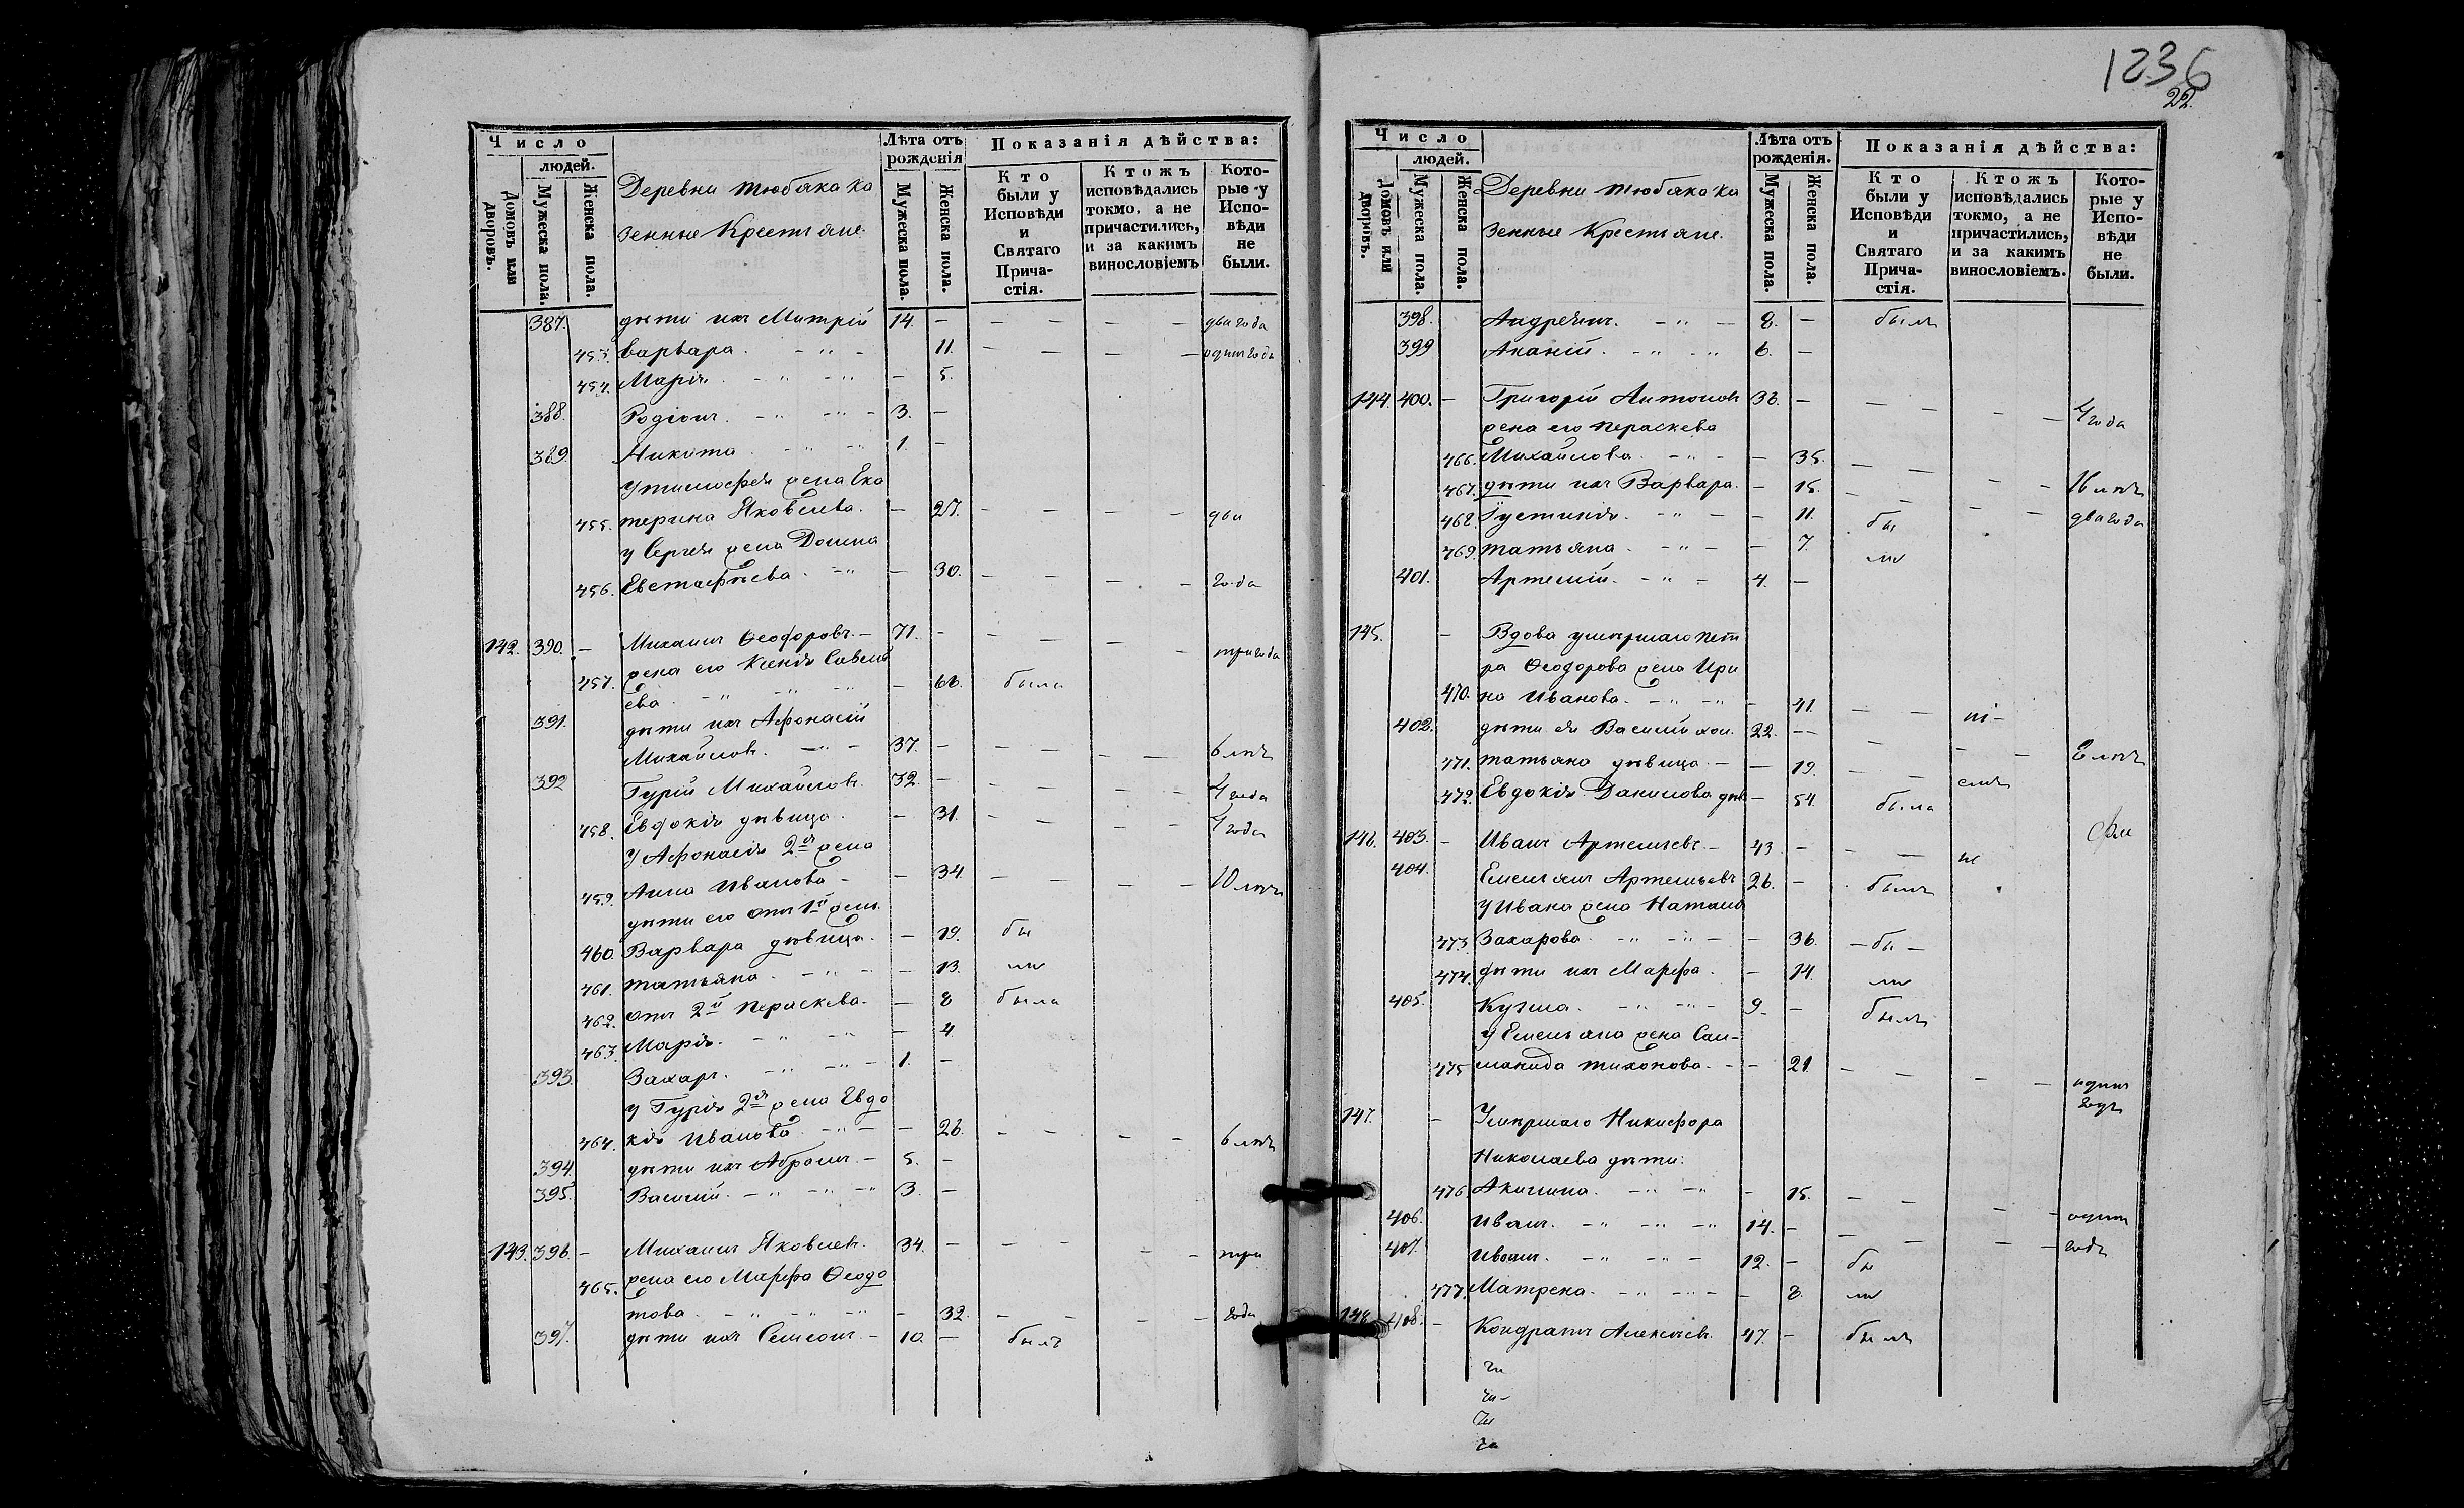 1236
22.
Число
людей.
Домовъ или дворовъ.
Мужеска пола.
Женска пола.
Деревни Тюбяка ка
зенные Крестьяне.
Лѣта отъ рожденія
Мужеска пола.
Женска пола.
Показанія дѣйства:
Кто были у Исповѣди и Святаго Прича-стія.
Ктожъ исповѣдались токмо, а не причастились, и за какимъ винословіемъ
Кото-рые у Испо-вѣди не были.
387. дѣти ихъ Митрій 14. — два года
453. Варвара. 11. — одинъ годъ
454. Марія — 5.
388. Родіонъ. 3. —
389. Никита 1. —
у Тимофея жена Ека
455. терина Яковлева. — 27. два
у Сергея жена Домна
456. Евстафѣева — 30. года
142. 390. — Михаилъ Ѳеодоровъ. — 71. — три года
жена его Ксенія Савель
457. ева — 66. была
391. дѣти ихъ Афонасій
Михайловъ. 37. — 6 лѣтъ
392 Гурій Михайловъ 32. — 4 года
458. Евдокія дѣвица. — 31. 4 года
у Афонасія 2я жена
459. Анна Иванова — — 34. 10 лѣтъ
дѣти его отъ 1й жены
460. Варвара дѣвица. — 19. бы
461. Татьяна. — 13. ли
462. отъ 2й Пераскева. — 8 была
463. Марія. — 4.
393. Захаръ. 1. —
у Гурія 2я жена Евдо
464. кія Иванова — 26. 6 лѣтъ
394. дѣти ихъ Абрамъ. — 5. —
395. Василій. 3. —
143. 396. — Михаилъ Яковлевъ. 34. — три
465. жена его Марфа Ѳеодо
това. — 32. года
397. дѣти ихъ Семіонъ. — 10. — былъ
Число
людей.
Домовъ или дворовъ.
Мужеска пола.
Женска пола.
Деревни Тюбяка ка
зенные Крестьяне.
Лѣта отъ рожденія.
Мужеска пола.
Женска пола.
Показанія дѣйства:
Кто были у Исповѣди и Святаго Прича-стія.
Ктожъ исповѣдались токмо, а не причастились, и за какимъ винословіемъ.
Кото-рые у Испо-вѣди не были.
398. Андреянъ. 8. — былъ
399 Ананій. 6. —
144. 400. — Григорій Антоновъ 38. — 4 года
жена его Пераскева
466. Михайлова. — 35. 16 лѣтъ
467. дѣти ихъ Варвара. — 15. два года
468. Іустинія. — 11. бы
469. Татьяна. — 7. ли
401. Артемій. 4. —
145. — Вдова умершаго Пет
ра Ѳеодорова жена Ири
470. на Иванова. — 41.
402. дѣти ея Василій хол. 22. — 8 лѣтъ
471. Татьяна дѣвица. — 19.
472. Евдокія Данилова дѣв — 54. была
146. 403. — Иванъ Артемьевъ. — 43. —
404. Емельянъ Артемьевъ 26. — былъ
у Ивана жена Наталья
473. Захарова. — 36. — бы —
474. дѣти ихъ Марфа. — 14. ли
405. Кузма. 9. — былъ
у Емельяна жена Сал-
475 манида Тихонова. — 21. одинъ
годъ
147. — Умершаго Никифора
Николаева дѣти:
476. Акилина. — 15. одинъ
406. Иванъ. 14. — годъ
407. Иванъ. 12. — бы
477. Матрена. — 8. ли
148. 408. — Кондратъ Алексѣевъ. 47. — былъ